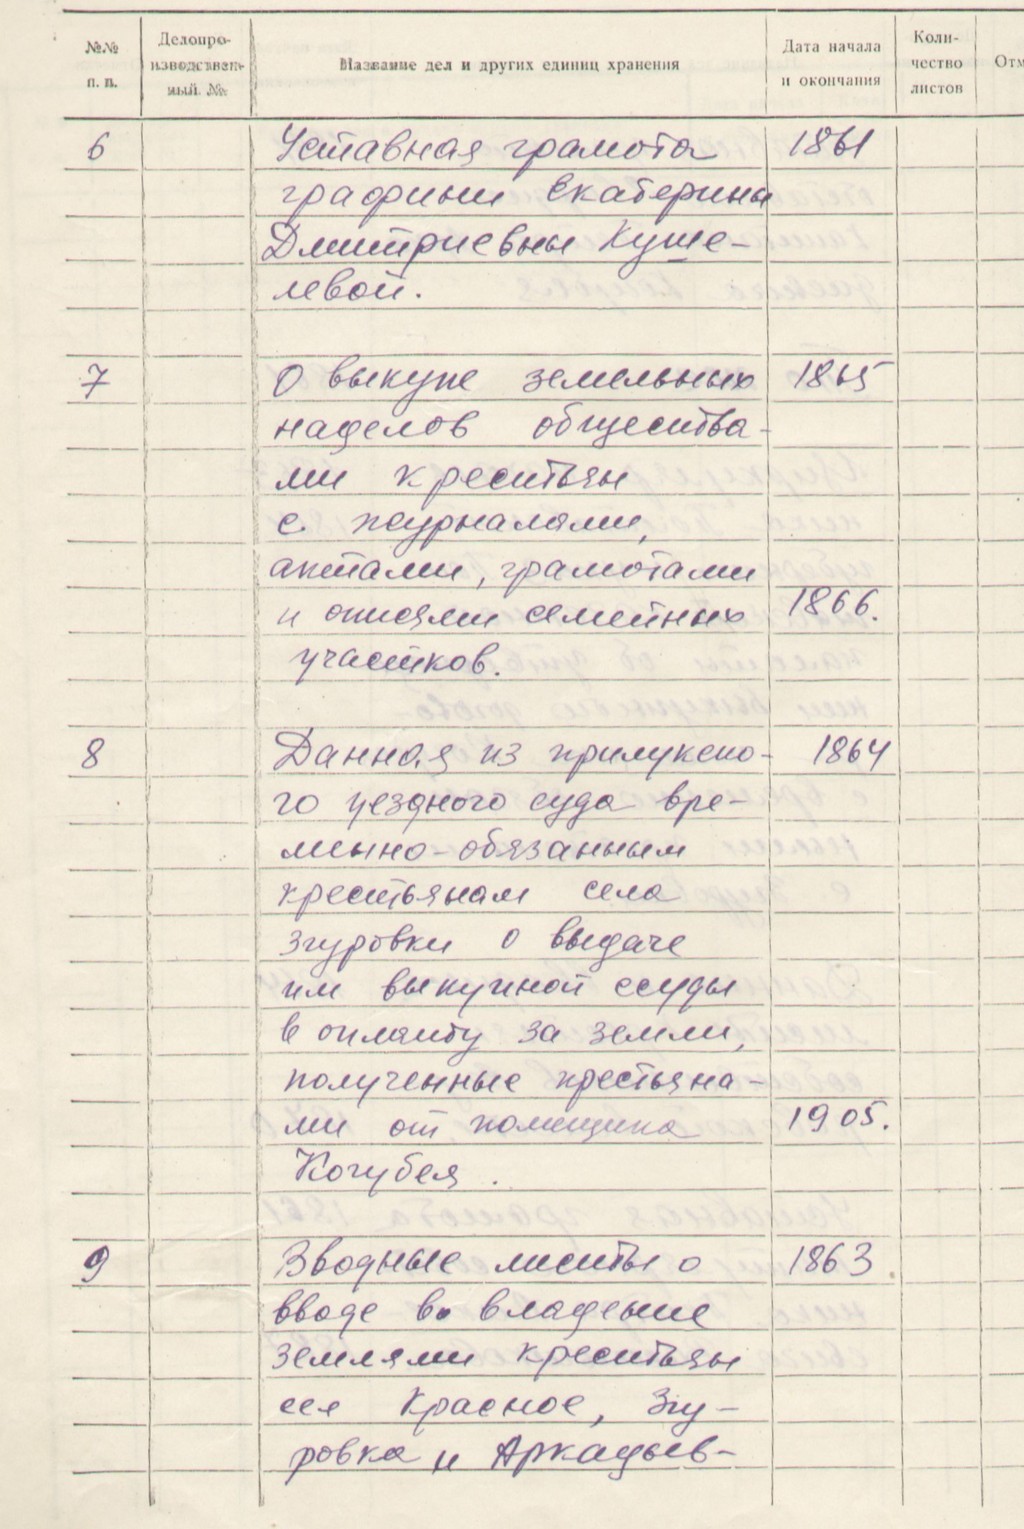 №№ п. п.
Делопроизводственный №
Название дел и других единиц хранения
Дата начала и окончания
Количество листов
Отм
6 Уставная грамота 1861
графини Екатерины
Дмитриевны Куше-
левой.
7 О выкупе земельных 1865
наделов общества-
ми крестьян
с журналами,
актами, грамотами
и описями семейных 1866.
участков.
8 Данная из прилукско- 1864
го уездного суда вре-
менно-обязанным
крестьянам села
Згуровки о выдаче
им выкупной ссуды
в оплату за земли,
полученные крестьяна-
ми от помещика 1905.
Кочубея.
9 Вводные листы о 1863
вводе во владение
землями крестьян
сел Красное, Згу-
ровка и Аркадьев-